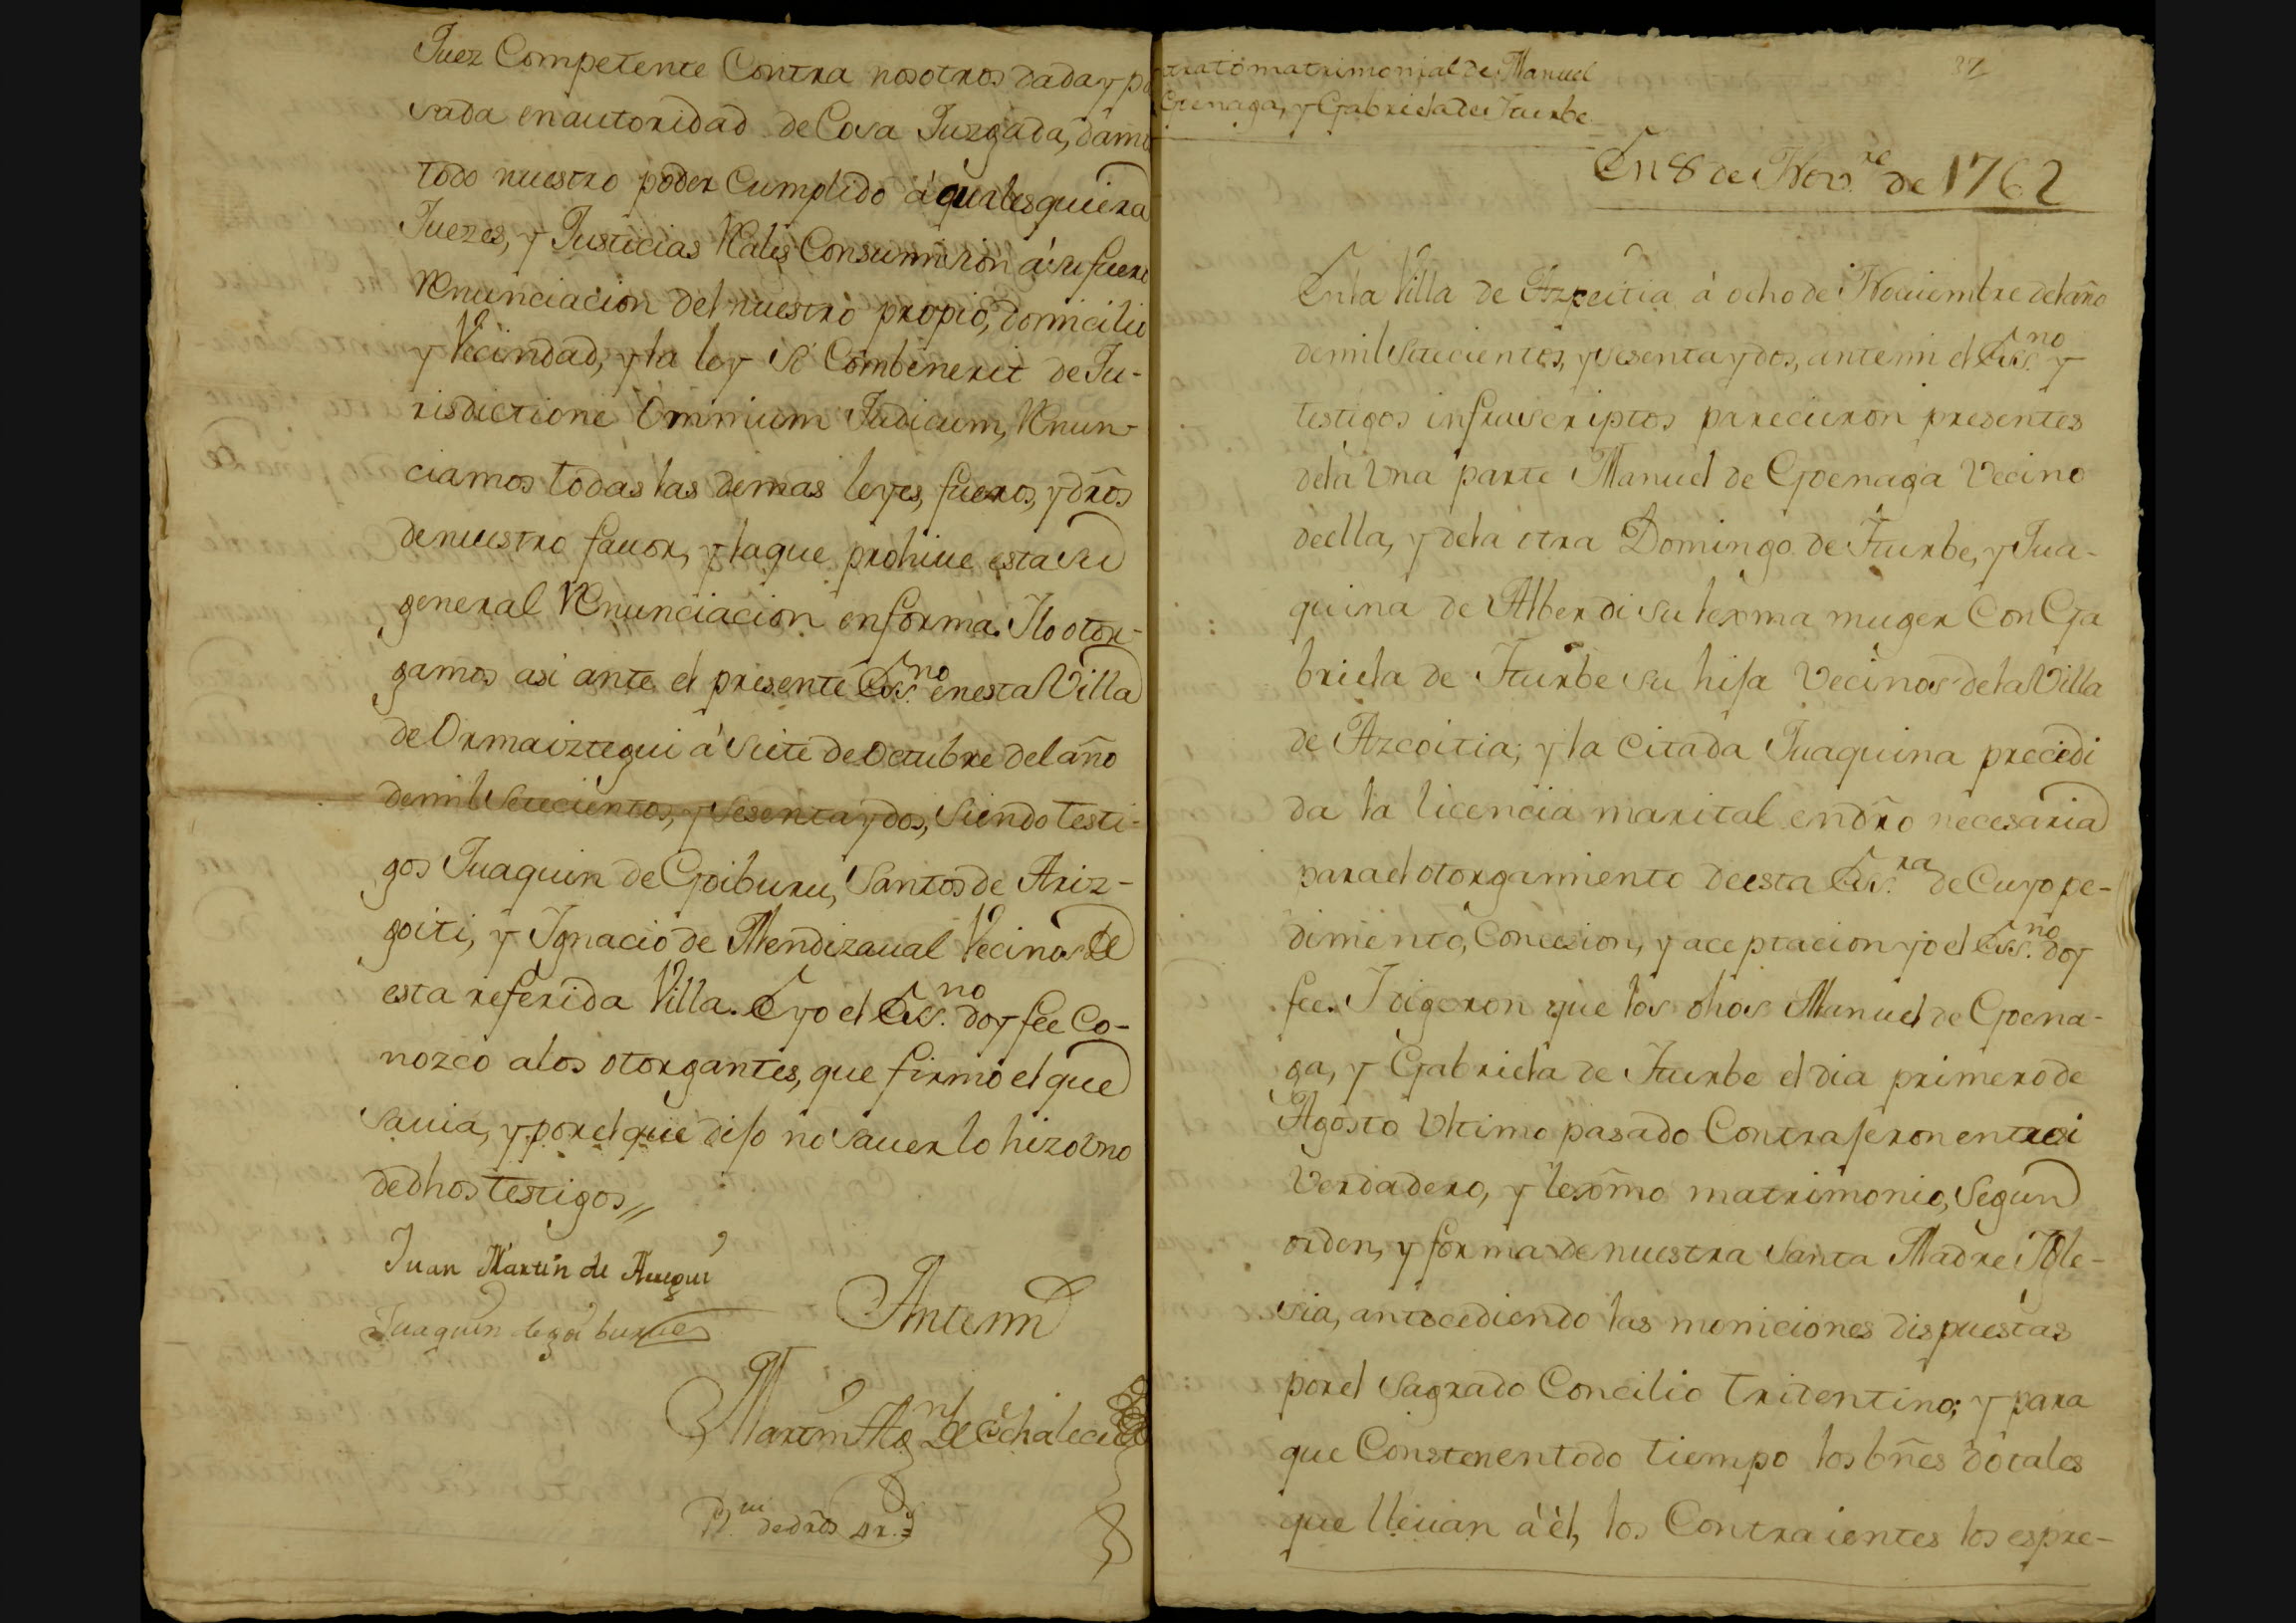 Juez Competente Contra nosotros dada y pa
sada en autoridad de Cosa Juzgada, damo
todo nuestro poder Cumplido á qualesquiera
Juezes, y Justicias Rales Consumision á su fuero
Renunciacion del nuestro propio, domicilio
y Vecindad, y la ley Si Combenerit de Ju-
risdictione Omnium Judicum, Renun-
ciamos todas las demas leyes, fueros, y dros
de nuestro fauor, y la que prohiue esta su
general Renunciacion en forma. Ilo otor-
gamos asi ante el presente Ess.no en esta Villa
de Ormaiztegui á Siete de Octubre del año
de mil Setecientos, y Sesenta y dos, Siendo testi-
gos Juaquin de Goiburu, Santos de Ariz-
goiti, y Ignacio de Mendizaual Vecinos de
esta referida Villa. E yo el Ess.no doy fee Co-
nozco a los otorgantes, que firmó el que
sauia, y por el que dijo no sauer lo hizo Vno
de dhos testigos //
Juan Martin de
Juaquin de goiburu
Ante mi
Martin de Echalecu
D.ni de dros 4 r.s
trato matrimonial de Manuel
Goenaga, y Gabriela de Iturbe
37
En 8 de Nov.re de 1762
En la Villa de Azpeitia á ocho de Nouiembre del año
de mil Setecientos, y sesenta y dos, ante mi el Ess.no y
testigos infrascriptos parecieron presentes
de la Vna parte Manuel de Goenaga Vecino
de ella, y de la otra Domingo de Iturbe, y Jua-
quina de Alberdi su lexma muger Con Ga
briela de Iturbe su hija Vecinos de la Villa
de Azcoitia; y la citada Juaquina precedi
da la licencia marital en dro necesaria
para el otorgamiento de esta Ess.ra de Cuyo pe-
dimento, Concesion, y aceptacion yo el Ess.no doy
fee. I digeron que los dhos Manuel de Goena-
ga, y Gabriela de Iturbe el dia primero de
Agosto Vltimo pasado Contrajeron entre si
Verdadero, y lexmo matrimonio, Segun
orden, y forma de nuestra Santa Madre Igle-
sia, antecediendo las moniciones dispuestas
por el Sagrado Concilio tridentino; y para
que Consten en todo tiempo los bñes dotales
que lleuan á él, los Contraientes los espre-